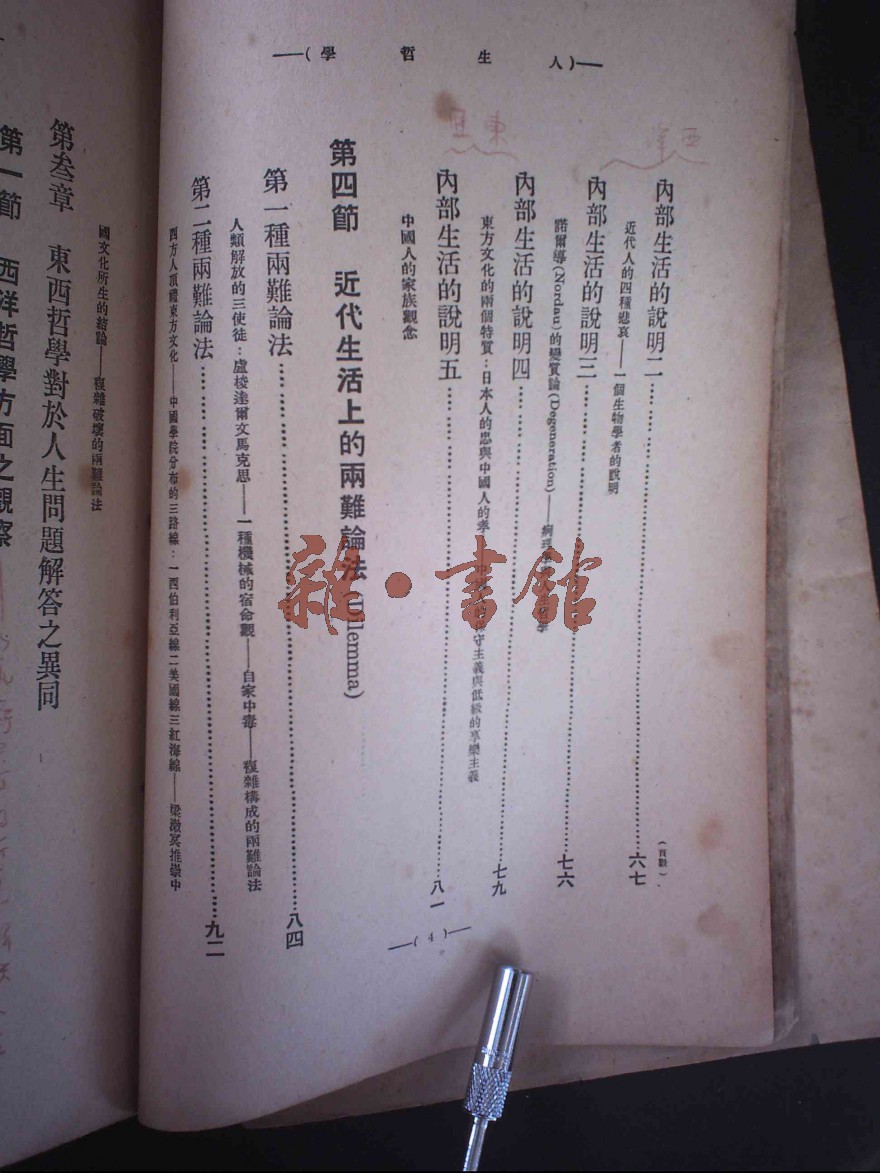 人生哲學
(頁數)
內部生活的說明二……六七
近代人的四種悲哀——一個生物學者的說明
內部生活的說明三……七六
諾爾導(Nordau)的變質論(Degeneration)——病理
內部生活的說明四……七九
東方文化的兩個特質：日本人的忠與中國人的孝 守主義與低級的享樂主義
內部生活的說明五……八一
中國人的家族觀念
第四節 近代生活上的兩難論法(Dilemma)
第一種兩難論法……八四
人類解放的三使徒：盧梭達爾文馬克思——一種機械的宿命觀——自家中毒——複雜構成的兩難論法
第二種兩難論法……九二
西方人頂禮東方文化——中國學院分布的三路線：一西伯利亞線二美國線三紅海線——梁漱冥推崇中
(4)
國文化所生的結論——複雜破壞的兩難論法
第叁章 東西哲學對於人生問題解答之異同
第一節 西洋哲學方面之觀察
西
東
雜·書館